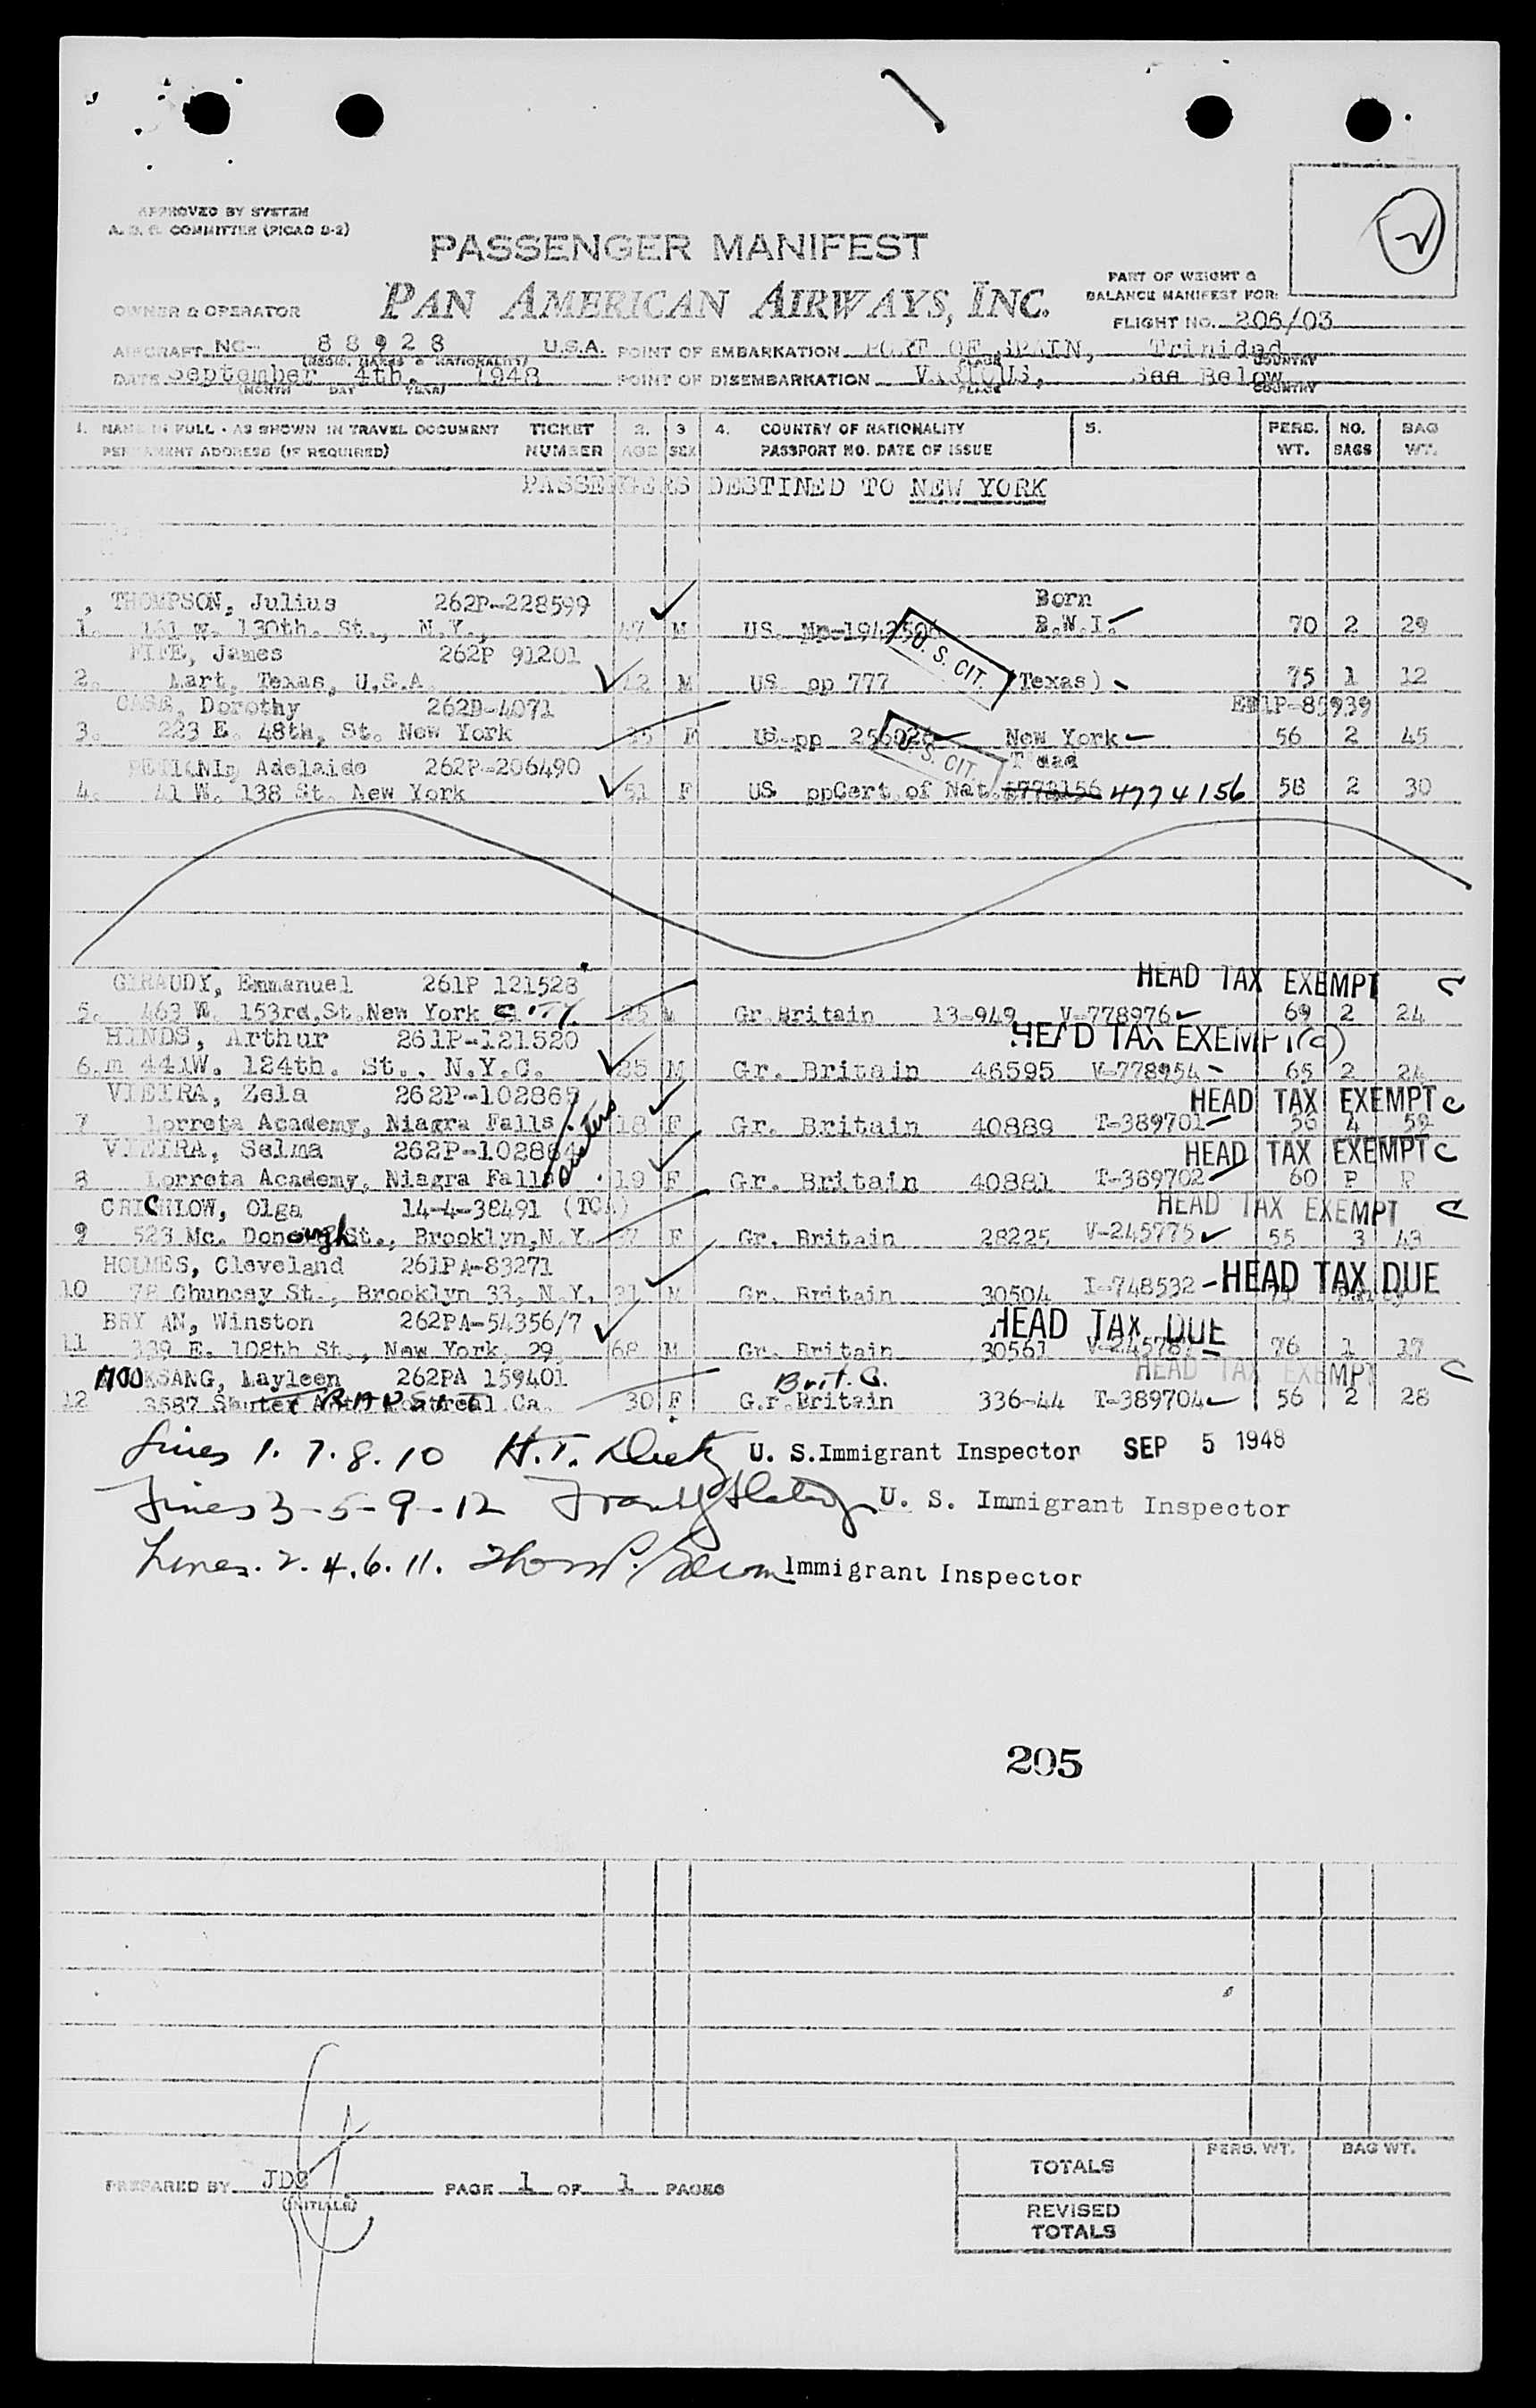 APPROVED BY SYSTEM
COMMITTEE (PICAO D-2)
PASSENGER MANIFEST
PAN AMERICAN AIRWAYS, INC.
OWNER & OPERATOR
PART OF WEIGHT &
BALANCE MANIFEST FOR:
FLIGHT NO. 206/03
AIRCRAFT NC- 88928 U.S.A. POINT OF EMBARKATION PORT OF SPAIN, Trinidad
(REGIS. MARKS & NATIONALITY) PLACE COUNTRY
DATE September 4th, 1948 POINT OF DISEMBARKATION VARIOUS, See Below
(MONTH DAY YEAR) PLACE COUNTRY
1. NAME IN FULL - AS SHOWN IN TRAVEL DOCUMENT TICKET 2. 3 4. COUNTRY OF NATIONALITY 5. PERS. NO. BAG
PERMANENT ADDRESS (IF REQUIRED) NUMBER AGE SEX PASSPORT NO. DATE OF ISSUE WT. BAGS WT.
PASSENGERS DESTINED TO NEW YORK
THOMPSON, Julius 262P-228599 Born
1. 161 W. 130th. St., N.Y., 47 M US. Mp-194250 B.W.I. 70 2 29
FIFE, James 262P 91201 U. S. CIT.
2. Mart, Texas, U.S.A. 42 M US pp 777 (Texas) 75 1 12
Dorothy 262D-4071 85939
3. 223 E. 48th, St. New York 25 F US pp 25602 New York 56 2 45
Adelaide 262P-206490 U. S. CIT. T'dad
4. 41 W. 138 St. New York 51 F US ppCert of Nat. 4774156 58 2 30
GIRAUDY, Emmanuel 261P 121528 HEAD TAX EXEMPT C
5. 463 W. 153rd, St. New York CITY. 25 M Gr. Britain 13-949 V-778976 69 2 24
HINDS, Arthur 261P-121520 HEAD TAX EXEMPT (c)
6. 441W. 124th. St., N.Y.C. 35 M Gr. Britain 46595 V-778954 65 2 24
VIEIRA, Zela 262P-102865 HEAD TAX EXEMPT C
7 Lorreta Academy, Niagra Falls. 18 F Gr. Britain 40889 T-389701 56 4 59
VIEIRA, Selma 262P-102864 HEAD TAX EXEMPT C
8 Lorreta Academy, Niagra Falls. 19 F Gr. Britain 40881 T-389702 60 P P
CRICHLOW, Olga 14-4-38491 (TCA) HEAD TAX EXEMPT C
9 523 Mc. Donough St., Brooklyn, N.Y. 37 F Gr. Britain 28225 V-245775 55 3 43
HOLMES, Cleveland 261PA-83271
10 78 Chuncey St., Brooklyn 33, N.Y. 31 M Gr. Britain 30504 I-748532 HEAD TAX DUE
BRYAN, Winston 262PA-54356/7 HEAD TAX DUE
11 339 E. 102th St., New York, 29 68 M Gr. Britain 30561 76 1 17
MOOKSANG, Layleen 262PA 159401 Brit. G. HEAD TAX EXEMPT C
12 3587 Montreal Ca. 30 F G.r. Britain 336-44 T-389704 56 2 28
Lines 1. 7. 8. 10 H.T. U. S. Immigrant Inspector SEP 5 1948
Lines 3-5-9-12 U. S. Immigrant Inspector
Lines. 2. 4. 6. 11. Immigrant Inspector
205
PREPARED BY JDS PAGE 1 OF 1 PAGES
(INITIALS)
PERS. WT. BAG WT.
TOTALS
REVISED
TOTALS